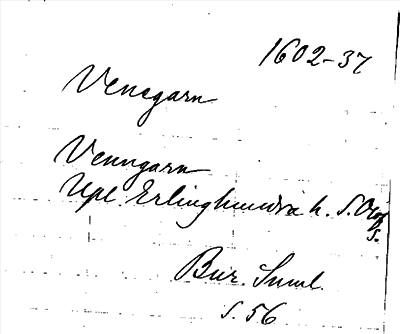 1602-37
Venegarn
Venngarn
Upl. Erlinghundra h. S. Olofs
s.
Bur. Suml.
s. 56